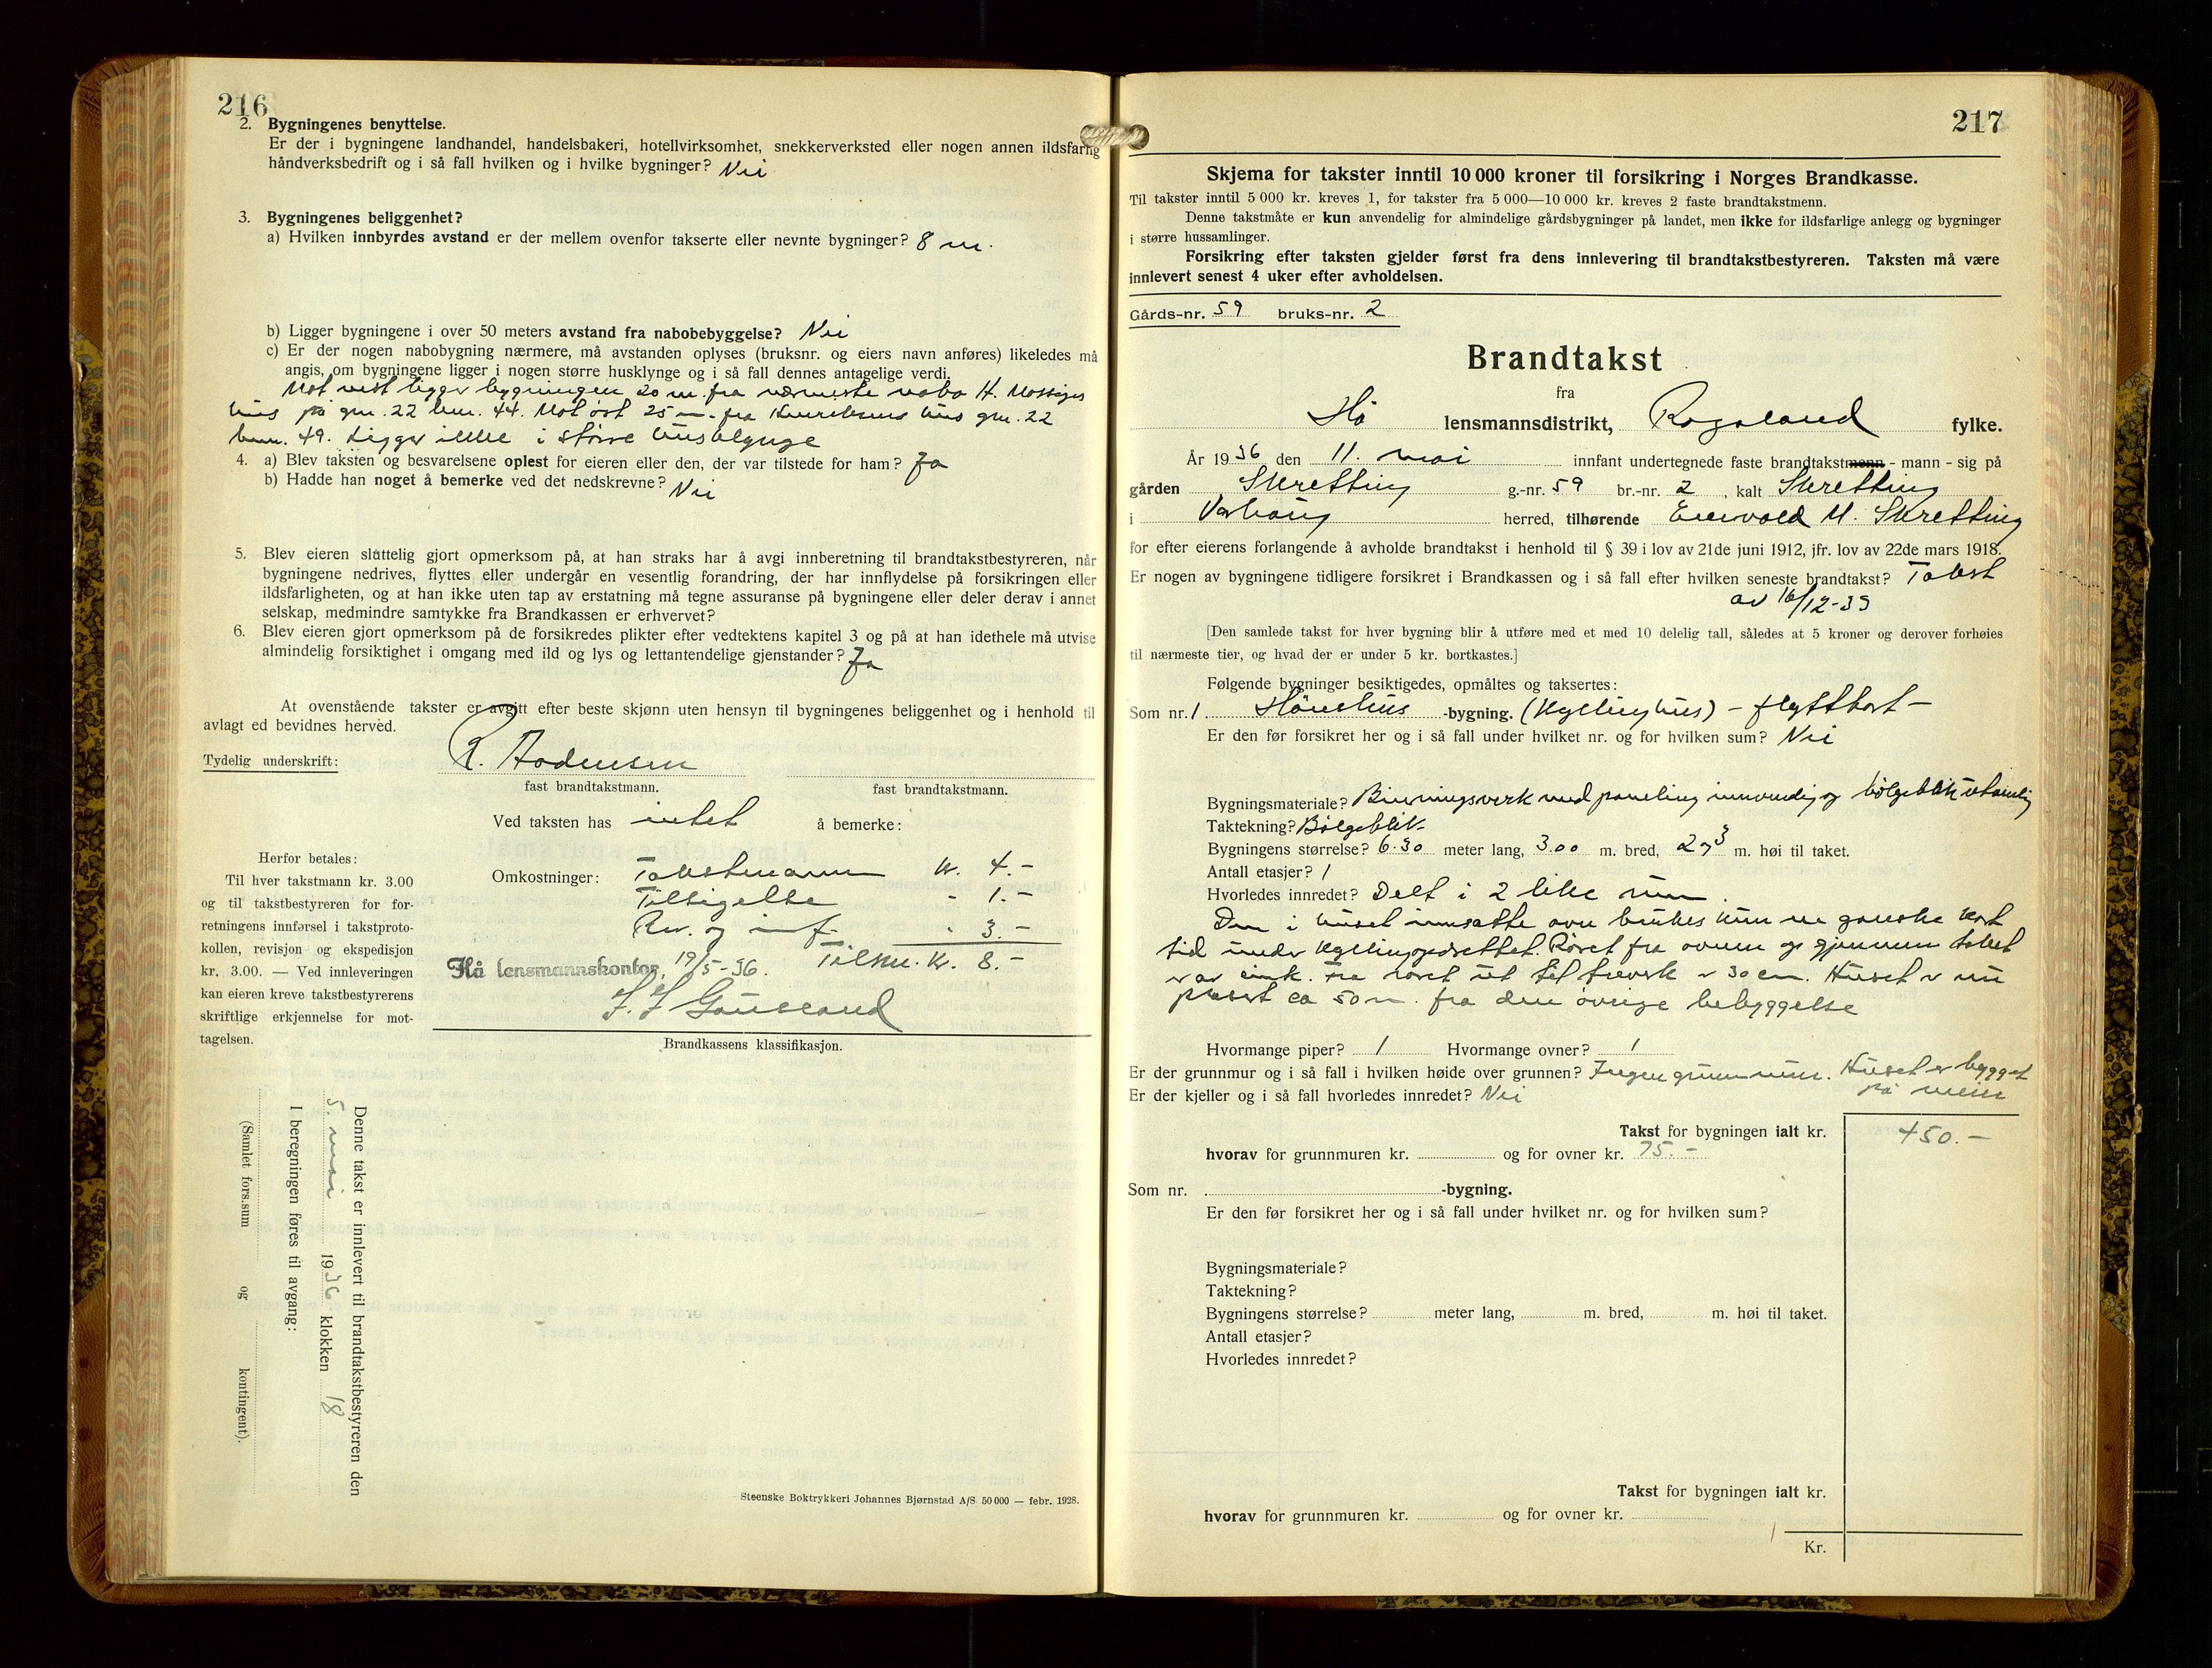 216
2. Bygningenes benyttelse.
Er der i bygningene landhandel, handelsbakeri, hotellvirksomhet, snekkerverksted eller nogen annen ildsfarlig
håndverksbedrift og i så fall hvilken og i hvilke bygninger? Nei
3. Bygningenes beliggenhet?
a) Hvilken innbyrdes avstand er der mellem ovenfor takserte eller nevnte bygninger? 8 m.
b) Ligger bygningene i over 50 meters avstand fra nabobebyggelse? Nei
c) Er der nogen nabobygning nærmere, må avstanden oplyses (bruksnr. og eiers navn anføres) likeledes må
angis, om bygningene ligger i nogen større husklynge og i så fall dennes antagelige verdi.
Mot vest ligger bygningen 20 m. fra nærmeste nabo H.
hus på gnr. 22 bnr. 44. Mot øst 25 m. fra hus gnr. 22
bnr. 49. Ligger ikke i større husklynge
4. a) Blev taksten og besvarelsene oplest for eieren eller den, der var tilstede for ham? Ja
b) Hadde han noget å bemerke ved det nedskrevne? Nei
5. Blev eieren sluttelig gjort opmerksom på, at han straks har å avgi innberetning til brandtakstbestyreren, når
bygningene nedrives, flyttes eller undergår en vesentlig forandring, der har innflydelse på forsikringen eller
ildsfarligheten, og at han ikke uten tap av erstatning må tegne assuranse på bygningene eller deler derav i annet
selskap, medmindre samtykke fra Brandkassen er erhvervet?
6. Blev eieren gjort opmerksom på de forsikredes plikter efter vedtektens kapitel 3 og på at han idethele må utvise
almindelig forsiktighet i omgang med ild og lys og lettantendelige gjenstander? Ja
At ovenstående takster er avgitt efter beste skjønn uten hensyn til bygningenes beliggenhet og i henhold til
avlagt ed bevidnes herved.
Tydelig underskrift: R. Aadnesen
fast brandtakstmann. fast brandtakstmann.
Ved taksten has intet å bemerke:
Omkostninger: Takstmann kr. 4.-
Tilsigelse - 1.-
Rev. og innf. - 3.-
Hå lensmannskontor, 19/5-36. Tilsm. kr. 8.-
Herfor betales:
Til hver takstmann kr. 3.00
og til takstbestyreren for for-
retningens innførsel i takstproto-
kollen, revisjon og ekspedisjon
kr. 3.00. — Ved innleveringen
kan eieren kreve takstbestyrerens
skriftlige erkjennelse for mot-
tagelsen.
Brandkassens klassifikasjon.
Denne takst er innlevert til brandtakstbestyreren den
5. mai 1936 klokken 18
I beregningen føres til avgang:
(Samlet fors.sum og kontingent).
Steenske Boktrykkeri Johannes Bjørnstad A/S 50 000 — febr. 1928.
217
Skjema for takster inntil 10 000 kroner til forsikring i Norges Brandkasse.
Til takster inntil 5 000 kr. kreves 1, for takster fra 5 000—10 000 kr. kreves 2 faste brandtakstmenn.
Denne takstmåte er kun anvendelig for almindelige gårdsbygninger på landet, men ikke for ildsfarlige anlegg og bygninger
i større hussamlinger.
Forsikring efter taksten gjelder først fra dens innlevering til brandtakstbestyreren. Taksten må være
innlevert senest 4 uker efter avholdelsen.
Gårds-nr. 59 bruks-nr. 2
Brandtakst
fra
Hå lensmannsdistrikt, Rogaland fylke.
År 1936 den 11. mai innfant undertegnede faste brandtakstmenn - mann - sig på
gården Skretting g.-nr. 59 br.-nr. 2, kalt Skretting
i Varhaug herred, tilhørende Enevald M. Skretting
for efter eierens forlangende å avholde brandtakst i henhold til § 39 i lov av 21de juni 1912, jfr. lov av 22de mars 1918.
Er nogen av bygningene tidligere forsikret i Brandkassen og i så fall efter hvilken seneste brandtakst? Takst
av 16/12-35
[Den samlede takst for hver bygning blir å utføre med et med 10 delelig tall, således at 5 kroner og derover forhøies
til nærmeste tier, og hvad der er under 5 kr. bortkastes.]
Følgende bygninger besiktigedes, opmåltes og taksertes:
Som nr. 1 Hønehus -bygning. (Kyllinghus) - flyttbart -
Er den før forsikret her og i så fall under hvilket nr. og for hvilken sum? Nei
Bygningsmateriale? Binningsverk med paneling innvendig og bølgeblikk utvendig
Taktekning? Bølgeblik
Bygningens størrelse? 6.30 meter lang, 3.00 m. bred, 2,3 m. høi til taket.
Antall etasjer? 1
Hvorledes innredet? Delt i 2 like rum.
Den i huset innsatte ovn brukes kun en ganske kort
tid under kyllingopdrettet. Røret fra ovnen og gjennem taket
er av sink. Fra røret ut til treverk er 30 cm. Huset er nu
plasert ca 50 m. fra den øvrige bebyggelse
Hvormange piper? 1 Hvormange ovner? 1
Er der grunnmur og i så fall i hvilken høide over grunnen? Ingen grunnmur. Huset er bygget
på meier
Er der kjeller og i så fall hvorledes innredet? Nei
Takst for bygningen ialt kr. 450.-
hvorav for grunnmuren kr. og for ovner kr. 75.-
Som nr. -bygning.
Er den før forsikret her og i så fall under hvilket nr. og for hvilken sum?
Bygningsmateriale?
Taktekning?
Bygningens størrelse? meter lang, m. bred, m. høi til taket.
Antall etasjer?
Hvorledes innredet?
Takst for bygningen ialt kr.
hvorav for grunnmuren kr. og for ovner kr.
Kr.